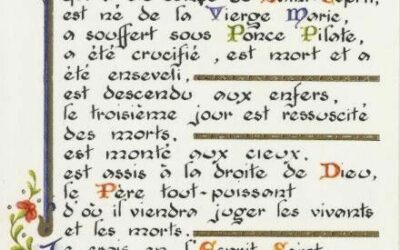 est né de la Vierge Marie,
a souffert sous Ponce Pilate,
a été crucifié, est mort et a
été enseveli,
est descendu aux enfers,
le troisième jour est ressuscité
des morts,
est monté aux cieux.
est assis à la droite de Dieu,
le Père tout-puissant
d'où il viendra juger les vivants
et les morts.
Je crois en l'Esprit Saint